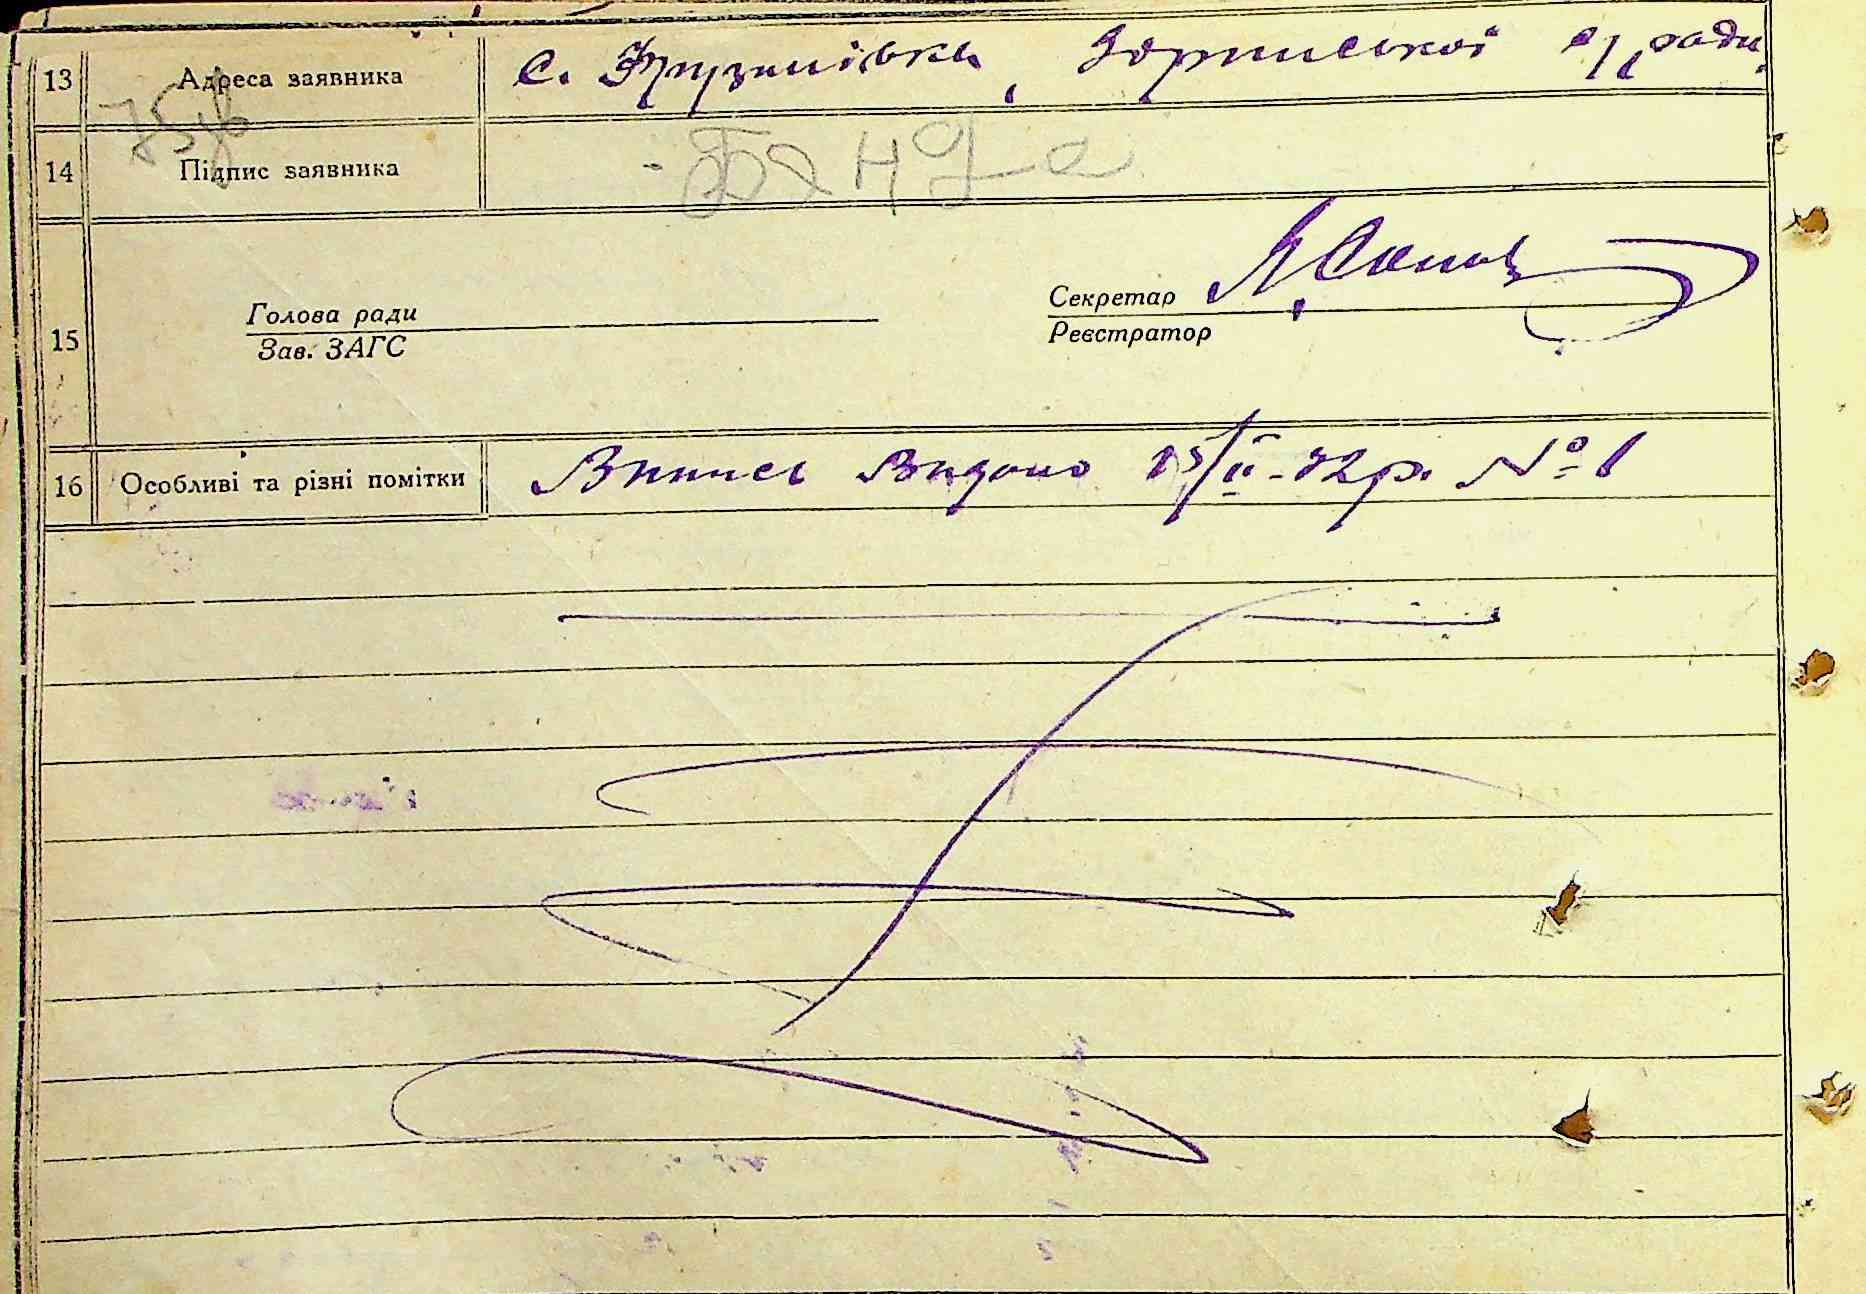 13 Адреса заявника с. Грузинівка, Зорянської с/ради
14 Підпис заявника
15 Голова ради Секретар
Зав. ЗАГС Реєстратор
16 Особливі та різні помітки Випись Видано 15/II-32р. № 1